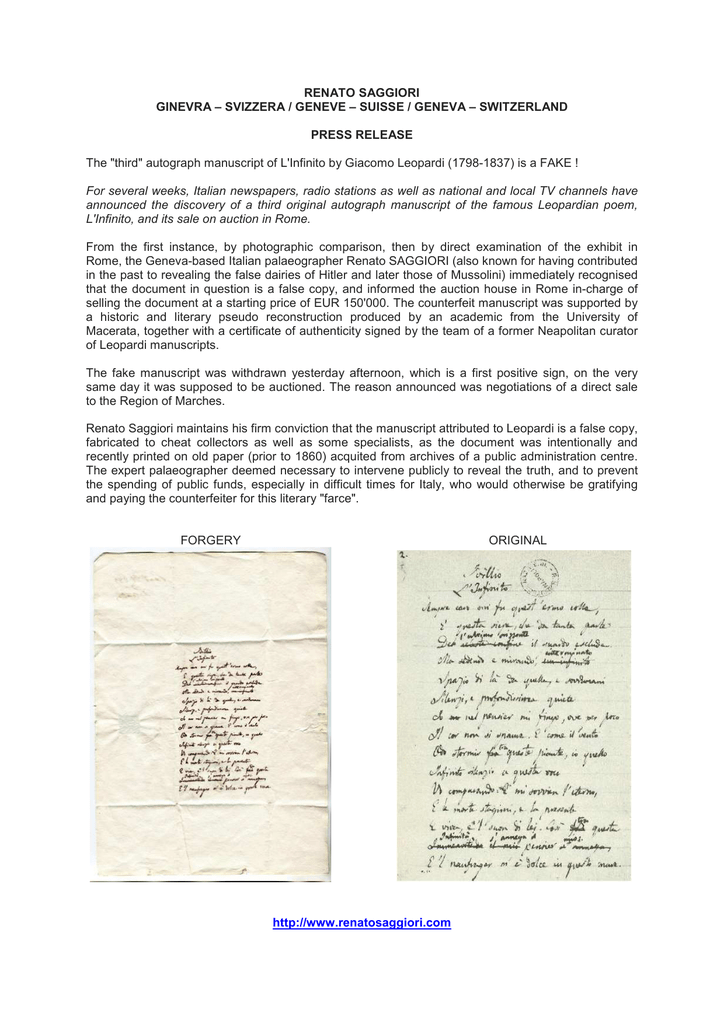 RENATO SAGGIORI
GINEVRA – SVIZZERA / GENEVE – SUISSE / GENEVA – SWITZERLAND
PRESS RELEASE
The "third" autograph manuscript of L'Infinito by Giacomo Leopardi (1798-1837) is a FAKE !
For several weeks, Italian newspapers, radio stations as well as national and local TV channels have
announced the discovery of a third original autograph manuscript of the famous Leopardian poem,
L'Infinito, and its sale on auction in Rome.
From the first instance, by photographic comparison, then by direct examination of the exhibit in
Rome, the Geneva-based Italian palaeographer Renato SAGGIORI (also known for having contributed
in the past to revealing the false dairies of Hitler and later those of Mussolini) immediately recognised
that the document in question is a false copy, and informed the auction house in Rome in-charge of
selling the document at a starting price of EUR 150'000. The counterfeit manuscript was supported by
a historic and literary pseudo reconstruction produced by an academic from the University of
Macerata, together with a certificate of authenticity signed by the team of a former Neapolitan curator
of Leopardi manuscripts.
The fake manuscript was withdrawn yesterday afternoon, which is a first positive sign, on the very
same day it was supposed to be auctioned. The reason announced was negotiations of a direct sale
to the Region of Marches.
Renato Saggiori maintains his firm conviction that the manuscript attributed to Leopardi is a false copy,
fabricated to cheat collectors as well as some specialists, as the document was intentionally and
recently printed on old paper (prior to 1860) acquited from archives of a public administration centre.
The expert palaeographer deemed necessary to intervene publicly to reveal the truth, and to prevent
the spending of public funds, especially in difficult times for Italy, who would otherwise be gratifying
and paying the counterfeiter for this literary "farce".
FORGERY
Idillio
L'Infinito
ORIGINAL
2.
Idillio
L'Infinito
Sempre caro mi fu quest'ermo colle,
E questa siepe, che da tanta parte
l'ultimo orizzonte
Del celeste confine il guardo esclude.
interminato
Ma sedendo e mirando, un infinito
Spazio di là da quella, e sovrumani
Silenzi, e profondissima quiete
Io nel pensier mi fingo, ove per poco
Il cor non si spaura. E come il vento
Odo stormir fra queste piante, io quello
Infinito silenzio a questa voce
Vo comparando: e mi sovvien l'eterno,
E le morte stagioni, e la presente
E viva, e 'l suon di lei. Così questa
Infinità s'annega il
pensier
E 'l naufragar m'è dolce in questo mare.
http://www.renatosaggiori.com